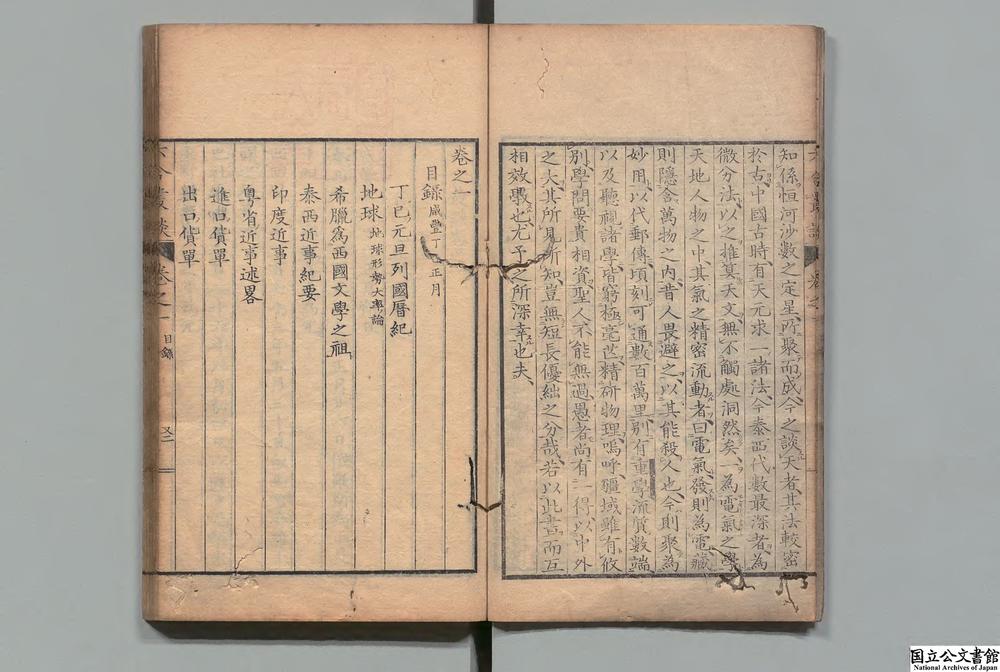 知係恒河沙數之定星、所聚而成、今之談天者、其法較密
於古、中國古時有天元求一諸法、今泰西代數最深者、為
微分法、以之推算天文、無不觸處洞然矣、一為電氣之學、
天地人物之中、其氣之精密流動者、曰電氣、發則為電、藏
則隱含萬物之內、昔人畏避之、以其能殺人也、今則聚為
妙用、以代郵傳、頃刻可通數百萬里、別有重學流質數端、
以及聽視諸學、皆窮極毫芒、精研物理、嗚呼、疆域雖有攸
別、學問要貴相資、聖人不能無過、愚者尚有一得、以中外
之大、其所見所知、豈無短長優絀之分哉、若以此書、而互
相效也、尤予之所深幸也夫、
卷之一
目錄 咸豐丁 正月
丁巳元旦列國曆紀
地球 地球形勢大率論
希臘為西國文學之祖
泰西近事紀要
印度近事
粵省近事述畧
進口貨單
出口貨單
六合叢談 卷之一 目錄 又二
国立公文書館
National Archives of Japan